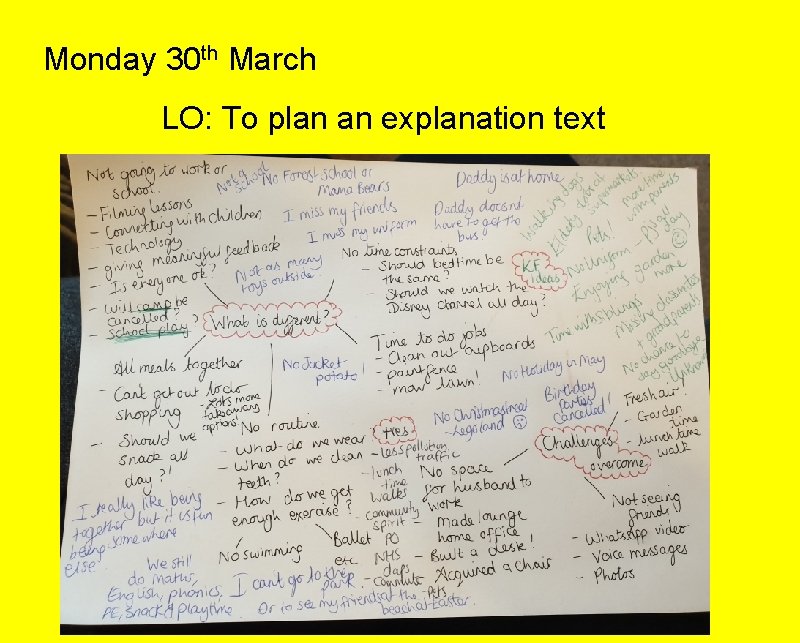 Monday 30th March
LO: To plan an explanation text
Not going to work or
school..
- Filming lessons
- Connecting with children
- Technology
- giving meaningful feedback
- Is everyone ok?
- Will camp be
cancelled?
- School play?
Not at
school
No Forest School or
Mama Bears
I miss my friends
I miss my uniform
Not as many
toys outside.
Daddy is at home
Daddy doesn't
have to get the
bus.
No time constraints
- Should bedtime be
the same?
- Should we watch the
Disney Channel all day?
KF
ideas
Walking dogs
Elderly
supermarkets
more time
with parents
Pets!
No Uniform - PJ's all
day
Enjoying garden
more
Time with siblings
Missing classmates
+ grandparents
No chance to
say goodbye
What is different?
All meals together
- Can't get out to do
shopping
- Should we
snack all
day?!
No Jacket
potato!
Time to do jobs
- Clean out cupboards
- paint fence
- mow lawn!
No Holiday in May
No Christmasimed
- Legoland
Birthday
parties
cancelled!
No routine.
- What do we wear
- When do we clean
teeth?
- How do we get
enough exercise?
+ves
- less pollution
traffic
- lunch
time
walks
- community
spirit -
PO
NHS
claps
- commute
- Pets
Challenges
overcome
Fresh air!
- Garden
time
- lunch time
walk
No space
for husband to
work
- Made lounge
home office
- Built a desk!
- Acquired a chair
Not seeing
friends
- WhatsApp video
- Voice messages
- Photos
I really like being
together but it is fun
being somewhere
else.
No swimming
Ballet
etc.
We still
do Maths,
English, phonics,
PE, Snack & playtime.
I can't go to the
park.
Or to see my friends at the
beach at Easter.